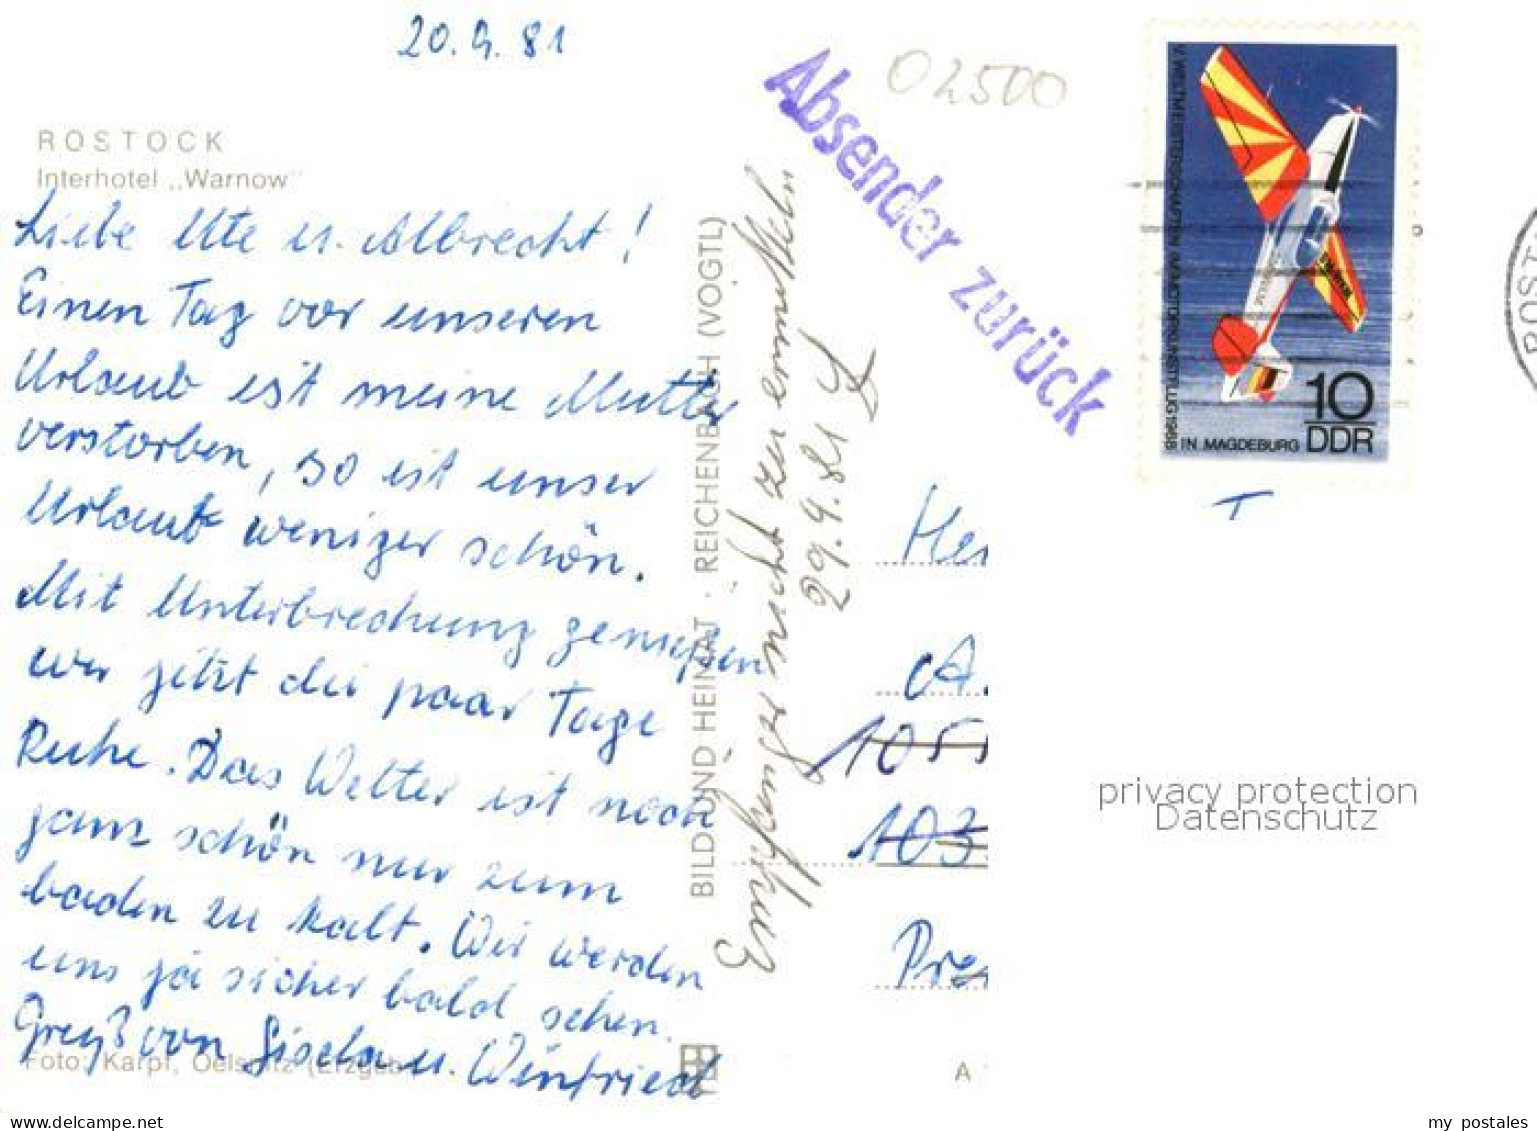 20.9.81
ROSTOCK
Interhotel „Warnow"
Liebe Ute u. Albrecht!
Einen Tag vor unseren
Urlaub ist meine Mutter
verstorben, so ist unser
Urlaub weniger schön.
Mit Unterbrechung genießen
wir jetzt die paar Tage
Ruhe. Das Wetter ist noch
ganz schön nur zum
baden zu kalt. Wir werden
uns ja sicher bald sehen.
Gruß von Gisela u. Winfried
Foto: Karpf, Oelsnitz (Erzgeb.)
BILD UND HEIMAT · REICHENBACH (VOGTL)
Empfänger nicht zu ermitteln
29.9.81
Absender zurück
02500
V. WELTMEISTERSCHAFT IM MOTORKUNSTFLUG 1968 IN MAGDEBURG
10
DDR
T
Her
A.
1055
103
Pre
A
privacy protection
Datenschutz
www.delcampe.net
my postales